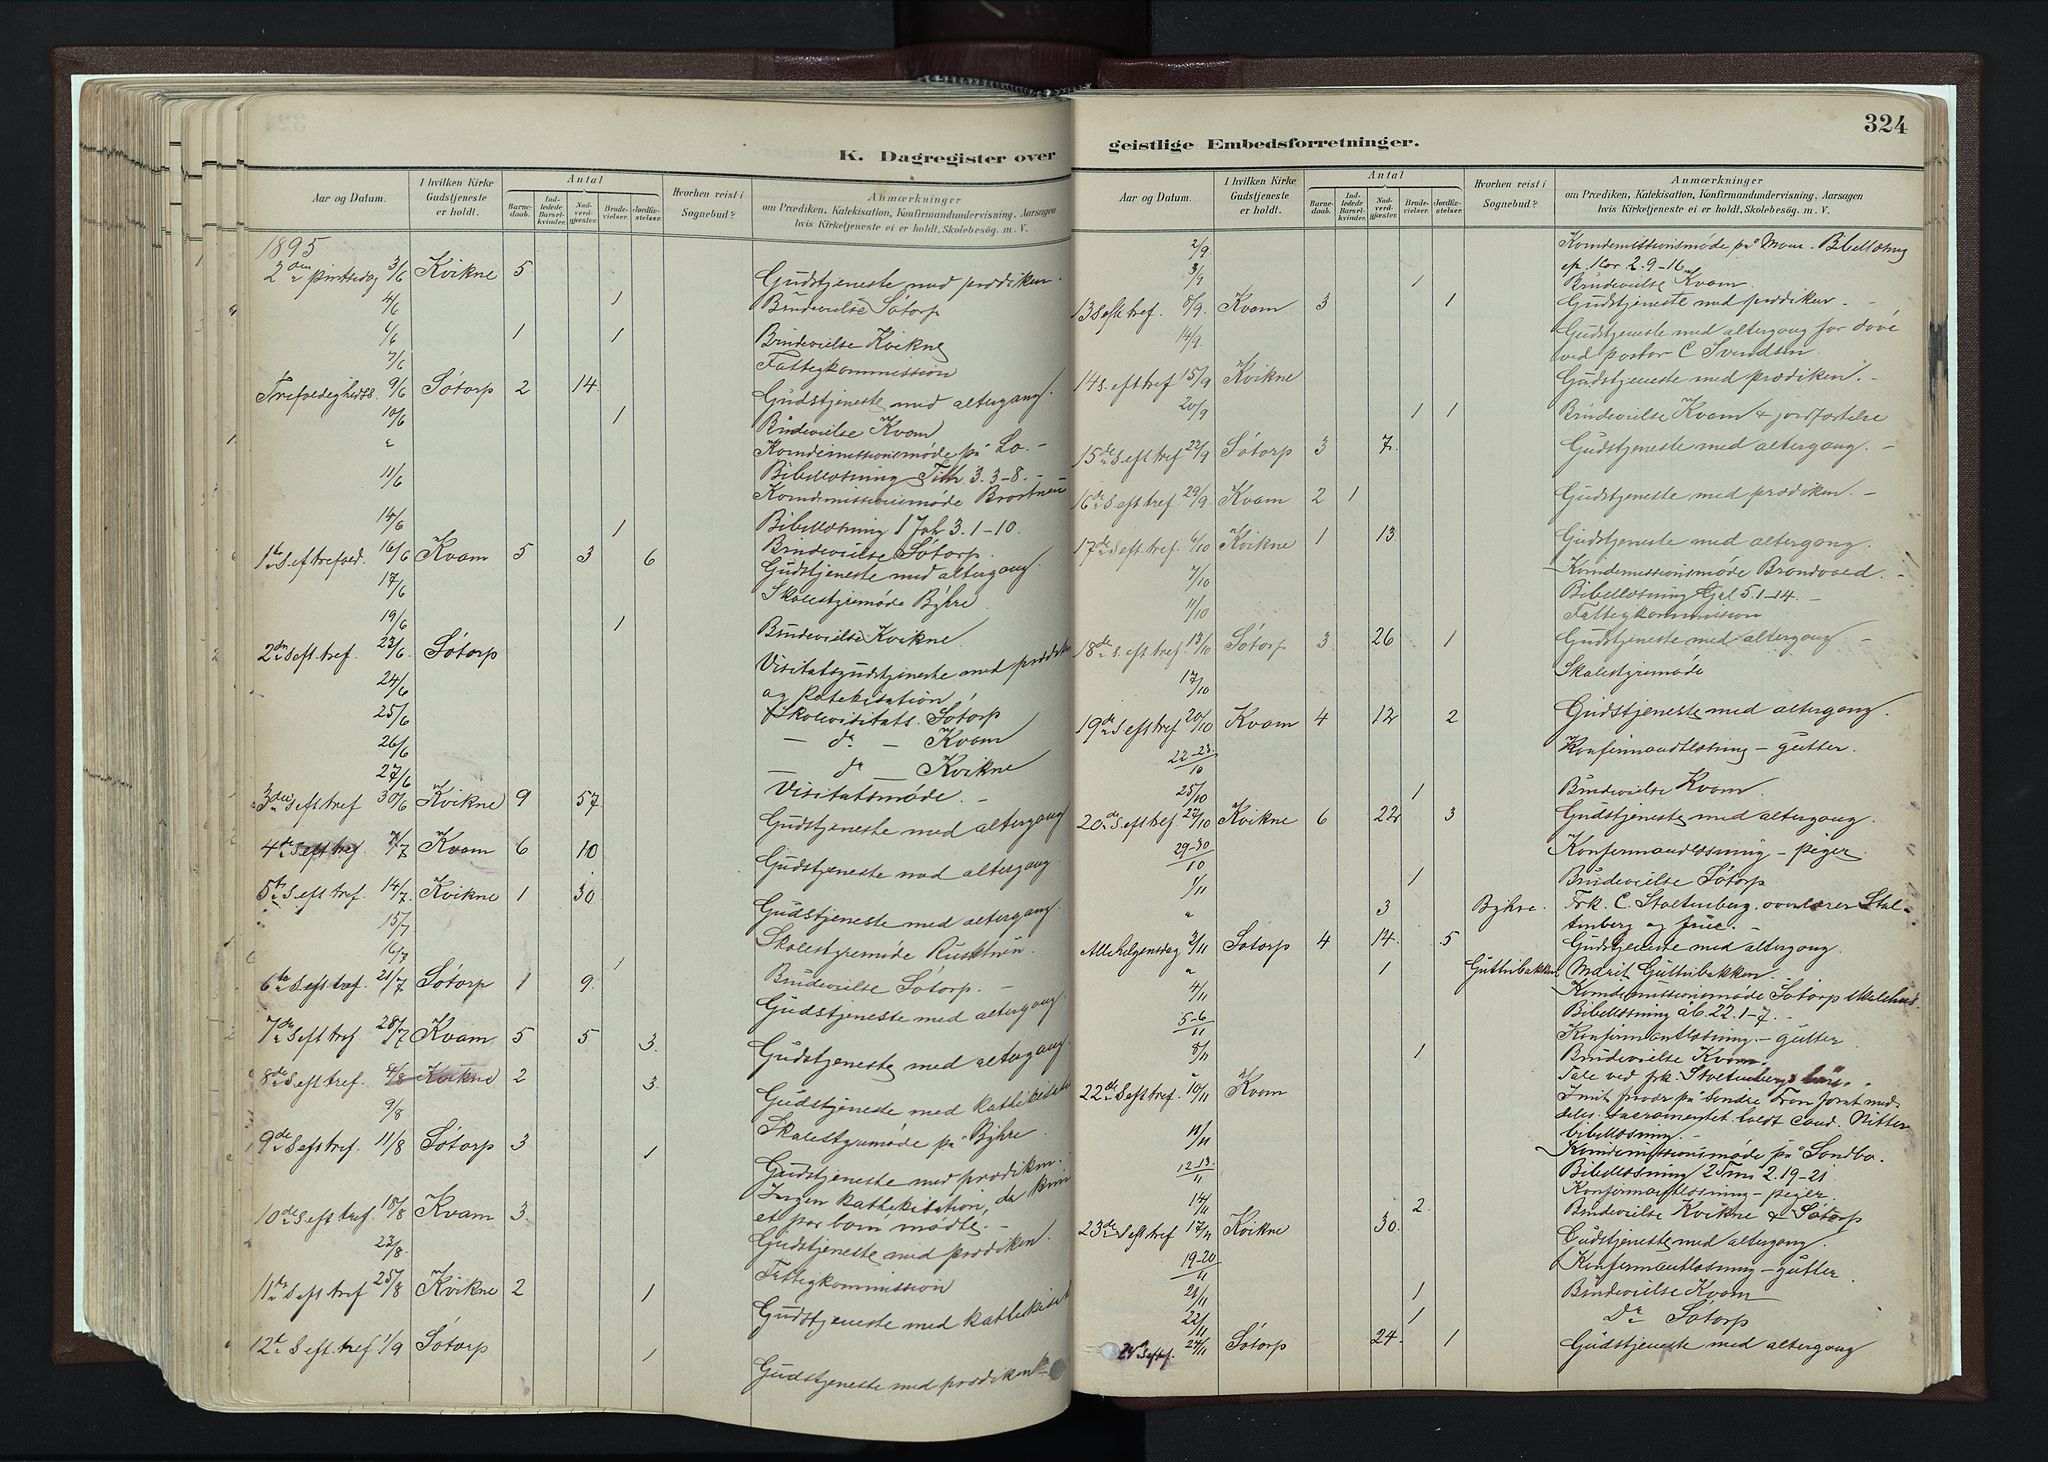 324
K. Dagregister over
geistlige Embedsforretninger.
Aar og Datum.
I hvilken Kirke Gudstjeneste er holdt.
Antal
Barne- daab.
Ind- ledede Barsel- kvinder.
Nad- verd- gjester.
Brude- vielser.
Jordfæ- stelser.
Hvorhen reist i Sognebud?
Anmærkninger
om Prædiken, Katekisation, Konfirmandundervisning, Aarsagen
hvis Kirketjeneste ei er holdt, Skolebesøg. m. V.
1895
2den Pintsedag 3/6 Kvikne 5 Gudstjeneste med prædiken.
4/6 1 Brudevielse Sótorp
6/6 1 1 Brudevielse Kvikne
7/6 Fattigkommission
Trefoldigheds. 9/6 Sótorp 2 14 Gudstjeneste med altergang.
10/6 1 Brudevielse Kvam
" Kvindemissionsmøde på Lo. -
11/6 Bibellæsning Tit. 3. 3-8. -
Kvindemissionsmøde
Bibellæsning 1 Joh 3. 1-10.
14/6 1 Brudevielse Sótorp.
1ste S eft trefold. 16/6 Kvam 5 3 6 Gudstjeneste med altergang.
17/6 Skolestyremøde Byhre.
19/6 1 Brudevielse Kvikne
2den S eft. tref. 23/6 Sótorp Visitatsgudstjeneste med prædiken
og katekisation
24/6 Skolevisitats. Sótorp
25/6 - do - Kvam
26/6 - do - Kvikne
27/6 Visitatsmøde. -
3die S eft tref 30/6 Kvikne 9 57 Gudstjeneste med altergang
4de S eft tref. 7/7 Kvam 6 10 Gudstjeneste med altergang.
5te S eft tref. 14/7 Kvikne 1 30 Gudstjeneste med altergang.
15/7 Skolestyremøde
16/7 1 Brudevielse Sótorp. -
6te S eft tref. 21/7 Sótorp 1 9 Gudstjeneste med altergang.
7de S eft tref. 28/7 Kvam 5 5 3 Gudstjeneste med altergang.
8de S eft tref. 4/8 Kvikne 2 3 Gudstjeneste med
9/8 Skolestyremøde på Byhre.
9de S eft tref. 11/8 Sótorp 3 1 Gudstjeneste med prædiken.
Ingen kathekisation, da kun
et par barn mødte. -
10de S eft tref. 18/8 Kvam 3 Gudstjeneste med prædiken.
23/8 Fattigkommission
11te S eft tref 25/8 Kvikne 2 1 Gudstjeneste med
12te S eft. tref 1/9 Sótorp 1 Gudstjeneste med prædiken
Aar og Datum.
I hvilken Kirke Gudstjeneste er holdt.
Antal
Barne- daab.
Ind- ledede Barsel- kvinder.
Nad- verd- gjester.
Brude- vielser.
Jordfæ- stelser.
Hvorhen reist i Sognebud?
Anmærkninger
om Prædiken, Katekisation, Konfirmandundervisning, Aarsagen
hvis Kirketjeneste ei er holdt, Skolebesøg. m. V.
2/9 Kvindemissionsmøde på Moen. Bibellæsning
ep. 1 Cor 2. 9-16
3/9 1 Brudevielse Kvam
13 S eft tref. 8/9 Kvam 3 1 Gudstjeneste med prædiken. -
14/9. Gudstjeneste med altergang for døve
ved pastor C Svendsen.
14 S. eft tref 15/9 Kvikne Gudstjeneste med prædiken. -
20/9 1 1 Brudevielse Kvam & jordfæstelse
15de S eft tref 22/9 Sótorp 3 7 Gudstjeneste med altergang. -
16de S eft tref. 29/9 Kvam 2 1 Gudstjeneste med prædiken. -
17de S eft. tref. 6/10 Kvikne 1 13 Gudstjeneste med altergang.
7/10 Kvindemissionsmøde Brandvold. -
Bibellæsning Gal 5. 1-14. -
11/10 Fattigkommission
18de S. eft tref 13/10 Sótorp 3 26 1 Gudstjeneste med altergang -
17/10 Skolestyremøde
19de S eft tref 20/10 Kvam 4 12 2 Gudstjeneste med altergang.
22-23/10 Konfirmandlæsning - gutter.
25/10 1 Brudevielse Kvam.
20de S eft tref. 27/10 Kvikne 6 22 3 Gudstjeneste med altergang.
29-30/10 Konfirmandlæsning - piger.
1/11 1 Brudevielse Sótorp
" 3 Byhre. Frk. C. Stoltenberg, overlærer Stol-
tenberg og frue. -
Allehelgensdag 3/11 Sótorp 4 14 5 Gudstjeneste med altergang.
" 1 Guttubakken Marit Guttubakken.
4/11 Kvindemissionsmøde Sótorp skolehus
Bibellæsning åb. 22. 1-7. -
5-6/11 Konfirmantlæsning. - gutter
8/11 1 Brudevielse Kvam.
22de S eft tref. 10/11 Kvam Tale ved frk. Stoltenbergs
Sacramentet. holdt Cand. Ritter
bibellæsning. -
11/11 Kvindemissionsmøde på Sandbo.
Bibellæsning 2 Tim 2. 19-21
12-13/11 Konfirmantlæsning - piger.
14/11 2. Brudevielse Kvikne & Sótorp
23de S eft tref 17/11 Kvikne 30. Gudstjeneste med altergang.
19-20/11 Konfirmantlæsning - gutter.
21/11 1 Brudevielse Kvam
22/11 1 do Sótorp
24de S eft tref. 24/11 Sótorp 24. 1 Gudstjeneste med altergang